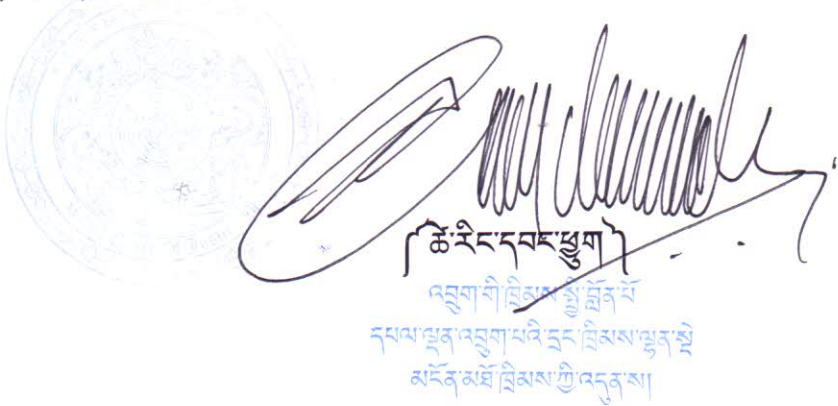 ༼ཚེ་རིང་དབང་ཕྱུག༽
འབྲུག་གི་ཁྲིམས་སྤྱི་བློན་པོ
དཔལ་ལྡན་འབྲུག་པའི་དྲང་ཁྲིམས་ལྷན་སྡེ
མངོན་མཐོ་ཁྲིམས་ཀྱི་འདུན་ས།